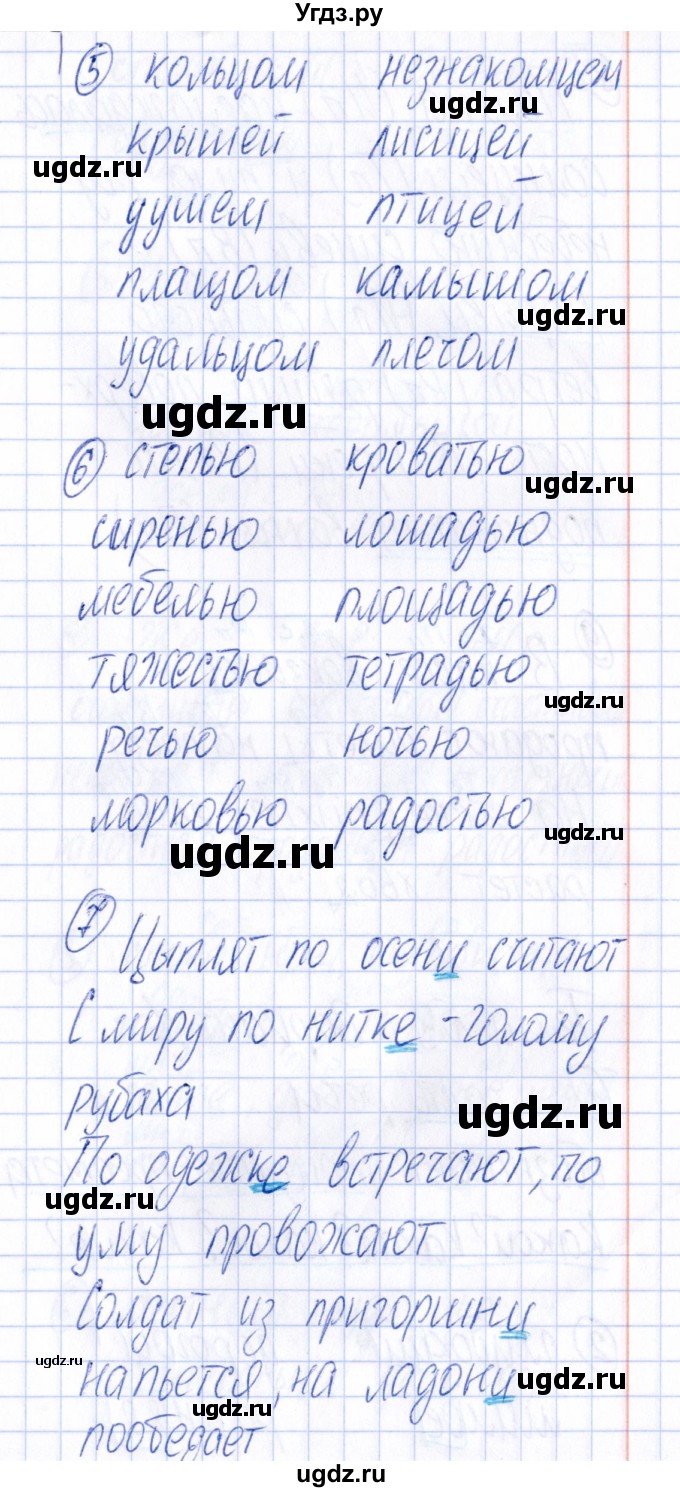 Угдз.ру
5 кольцом незнакомцем
ugdz.ru
крышей лисицей
ugdz.ru
душем птицей
плащом камышом
ugdz.ru
удальцом плечом
ugdz.ru
6 степью кроватью
ugdz.ru
сиренью лошадью
мебелью площадью
тяжестью тетрадью
ugdz.ru
речью ночью
морковью радостью
ugdz.ru
ugdz.ru
7
Цыплят по осени считают
С миру по нитке - голому
рубаха
ugdz.ru
По одежке встречают, по
ugdz.ru
уму провожают
Солдат из пригоршни
ugdz.ru
напьется, на ладони
ugdz.ru
ugdz.ru
пообедает
ugdz.ru